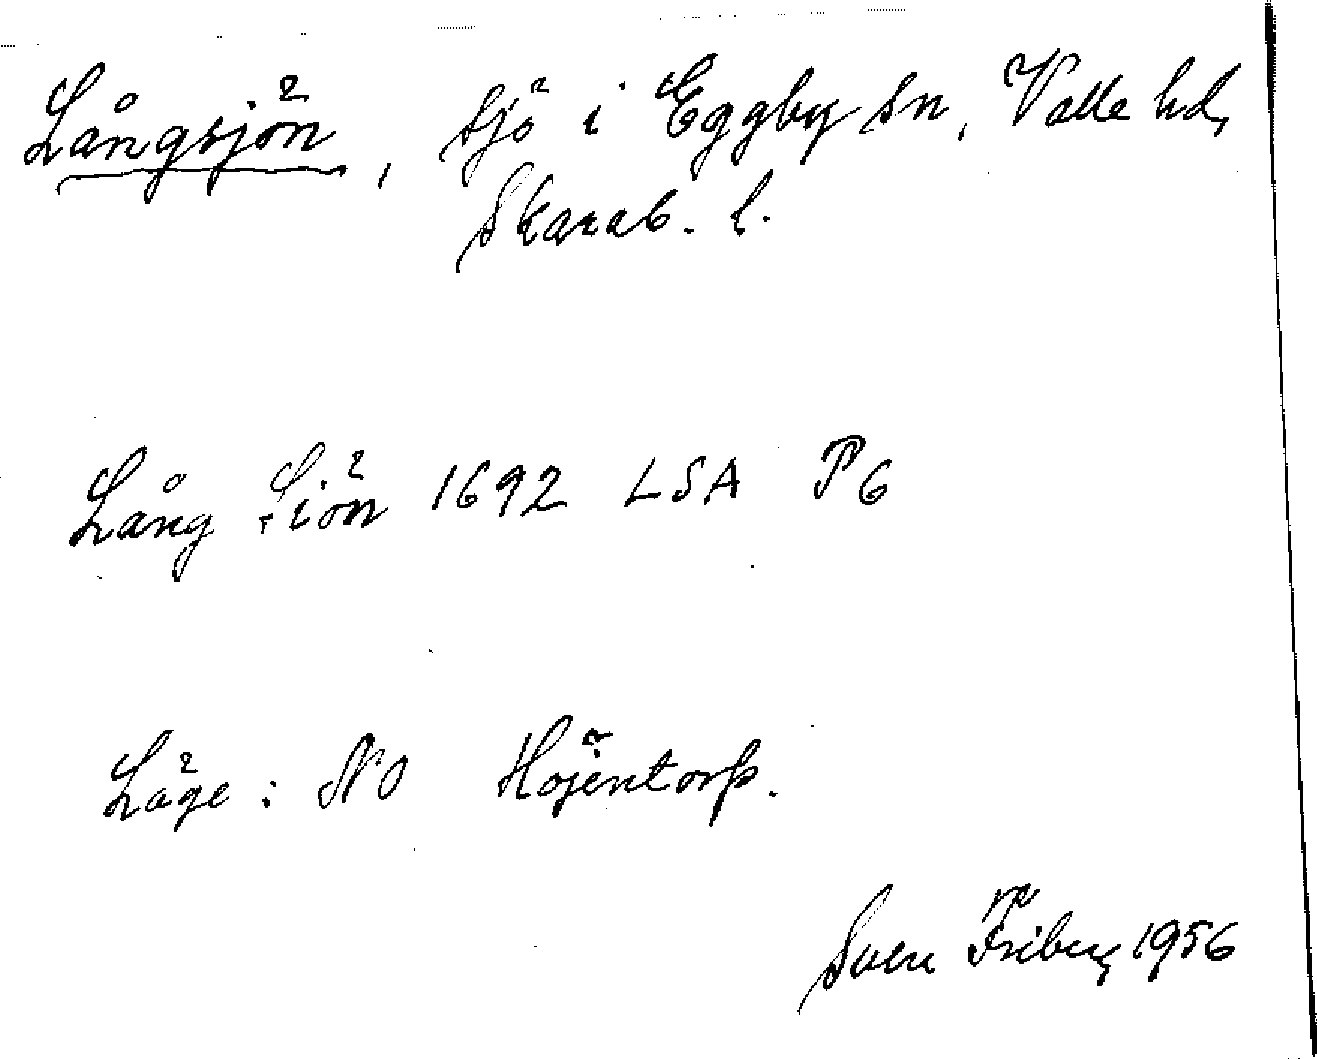 Långsjön, sjö i Eggby sn, Valle hd,
Skarab. l.
Lång Siön 1692 LSA P6
Läge: NO Höjentorp.
Sven Friberg 1956